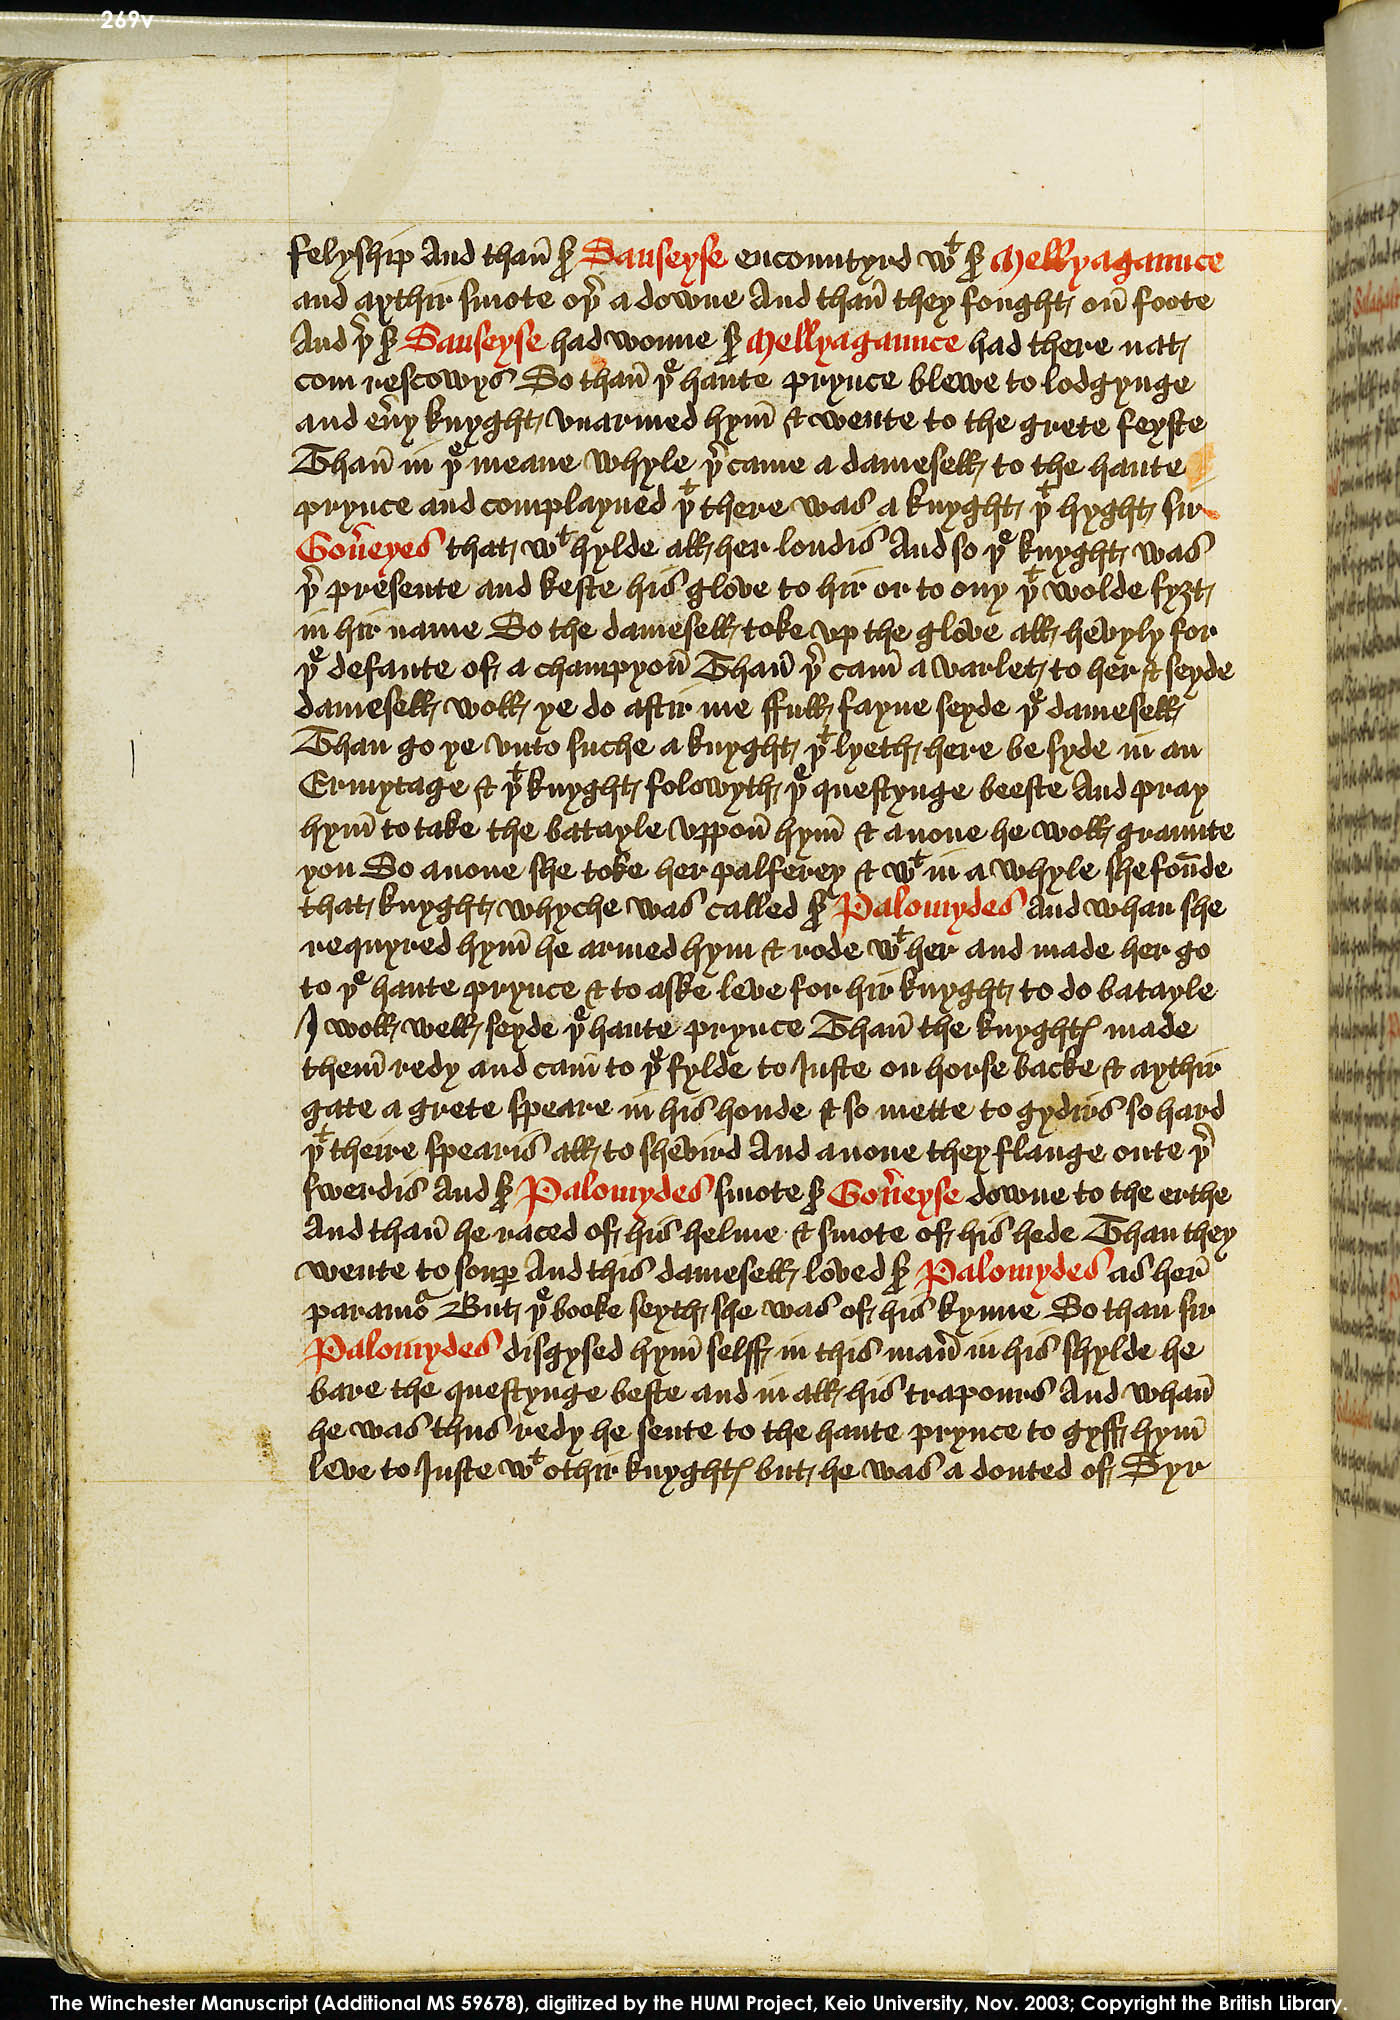 269v
felyship And than̄ ẜ Sauseyse encountyrd wᵗ ẜ Mellyagaunce
and aythir smote oþ̉ a downe And than̄ they fought on̄ foote
And þ̉ ẜ Sauseyse had wonne ẜ Mellyagaunce had there nat
com rescowys So than̄ þᵉ haute prynce blewe to lodgynge
and eủy knyght vnarmed hym̄ & wente to the grete feyste
Than̄ in þᵉ meane whyle þ̉ came a damesell to the haute
prynce and complayned þᵗ there was a knyght þᵗ hyght sir
Goủeyes that wᵗ hylde all her londis And so þᵉ knyght was
þ̉ presente and keste his glove to hir or to ony þᵗ wolde fyȝt
in hir name So the damesell toke vp the glove all hevyly for
þᵉ defaute of a champyon̄ Than̄ þ̉ cam̄ a varlet to her & seyde
damesell woll ye do aftir me ffull fayne seyde þᵉ damesell
Than go ye vnto suche a knyght þᵗ lyeth here be syde in an
Ermytage & þᵗ knyght folowyth þᵉ questynge beeste And pray
hym̄ to take the batayle vppon̄ hym̄ & anone he woll graunte
you So anone she toke her palferey & wᵗ in a whyle she foūde
that knyght whyche was called ẜ Palomydes And whan she
requyred hym̄ he armed hym & rode wᵗ her and made her go
to þᵉ haute prynce & to aske leve for hir knyght to do batayle
I woll well seyde þᵉ haute prynce Than̄ the knyghtꝭ made
them̄ redy and cam̄ to þᵉ fylde to Juste on horse backe & aythir
gate a grete speare in his honde & so mette to gydirs so hard
þᵗ theire spearis all to shevird And anone they flange oute þ̉
swerdis And ẜ Palomydes smote ẜ Goủeyse downe to the erthe
And than̄ he raced of his helme & smote of his hede Than they
wente to soup̲ And this damesell loved ẜ Palomydes as her̄
paramoᵘ But þᵉ booke seyth she was of his kynne So than sir
Palomydes disgysed hym̄ selff in this man̉ in his shylde he
bare the questynge beste and in all his trapours And whan̄
he was thus redy he sente to the haute prynce to gyff hym̄
leve to Juste wᵗ othir knyghtꝭ but he was a douted of Syr
The Winchester Manuscript (Additional MS 59678), digitized by the HUMI Project, Keio University, Nov. 2003; Copyright the British Library.